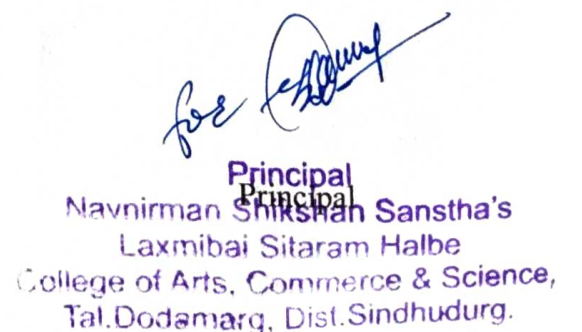 for
Principal
Principal
Navnirman Shikshan Sanstha's
Laxmibai Sitaram Halbe
College of Arts, Commerce & Science,
Tal.Dodamarg, Dist.Sindhudurg.